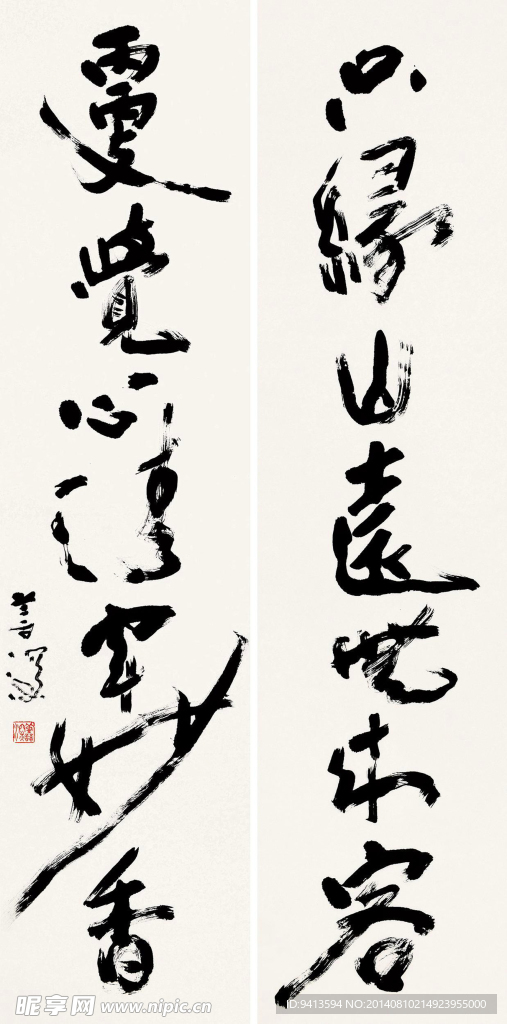 只緣山遠無来客
更覺心清聞妙香
昵享网 www.nipic.cn
ID:9413594 NO:20140810214923955000